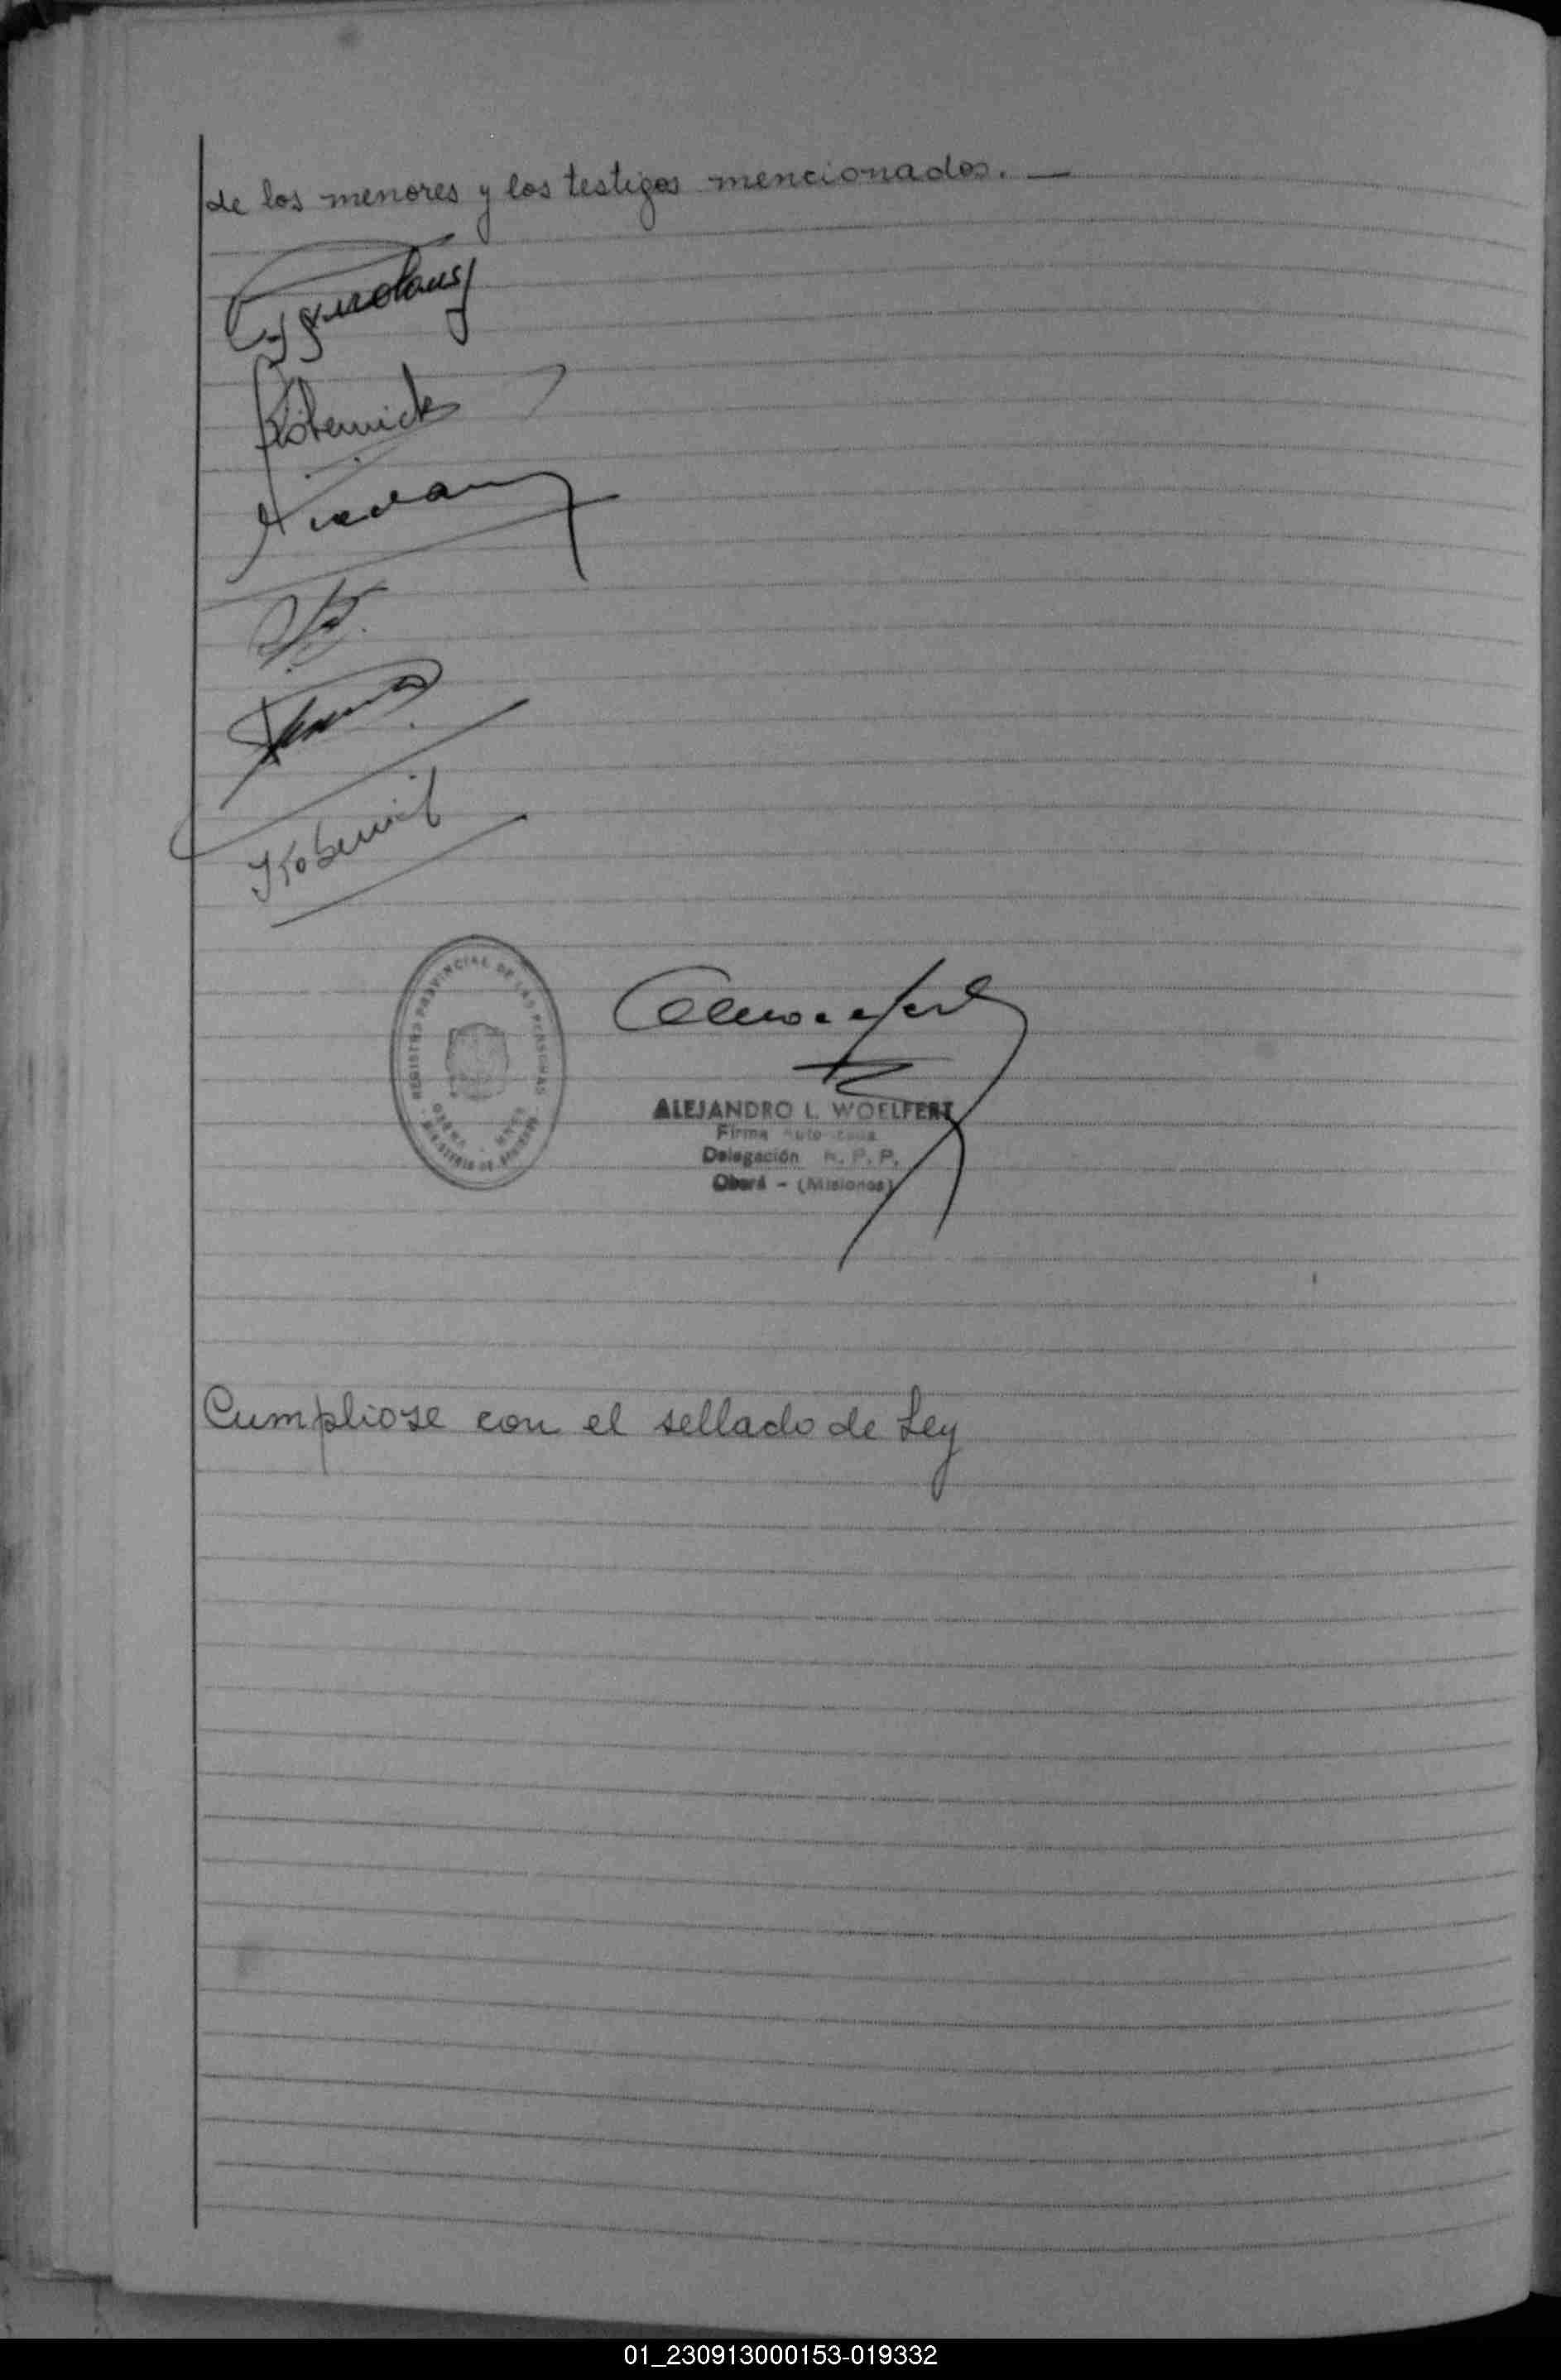 de los menores y los testigos mencionados. —
Köbernick
REGISTRO PROVINCIAL DE LAS PERSONAS
MINISTERIO DE
ALEJANDRO L. WOELFERT
Firma
Delegación R. P. P.
Oberá - (Misiones)
Cumpliose con el sellado de Ley
01_230913000153-019332